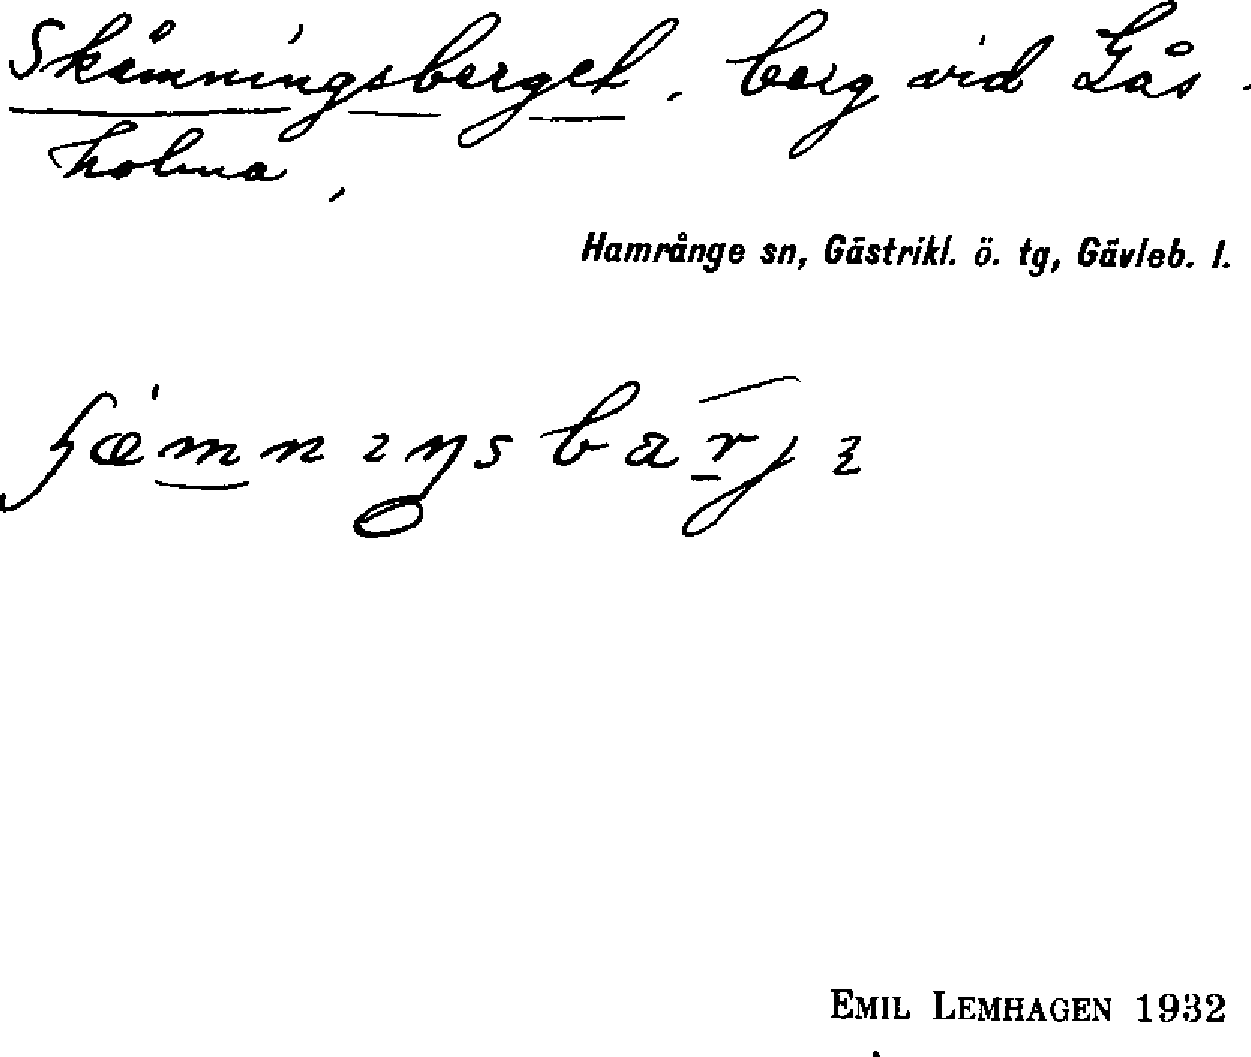 Skämningsberget, berg vid Gås-
holma,
Hamrånge sn, Gästrikl. ö. tg, Gävleb. l.
EMIL LEMHAGEN 1932